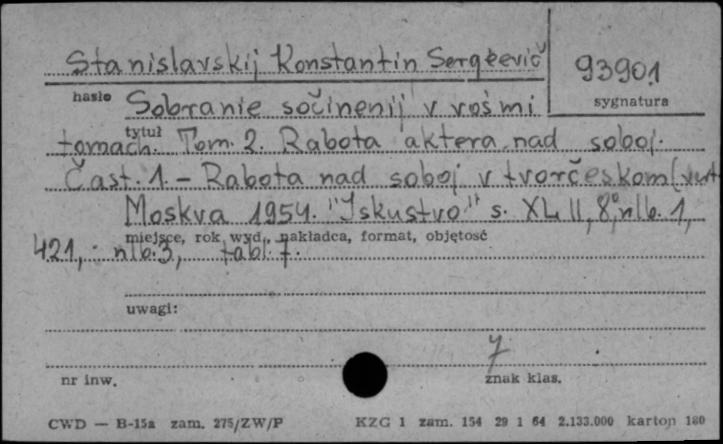 Stanislavskij Konstantin Sergeevič
93901
hasło
sygnatura
Sobranie sočinenij v vośmi
tytuł
tomach. Tom. 2. Rabota aktera nad soboj.
Čast. 1. - Rabota nad soboj v tvorčeskom
Moskva 1954. "Iskustvo" s. XLII, 8°, nlb. 1,
miejsce, rok wyd., nakładca, format, objętość
421, nlb. 3, tabl. 7.
uwagi:
7
nr inw.
znak klas.
CWD — B-15a zam. 275/ZW/P
KZG 1 zam. 154 29 1 64 2.133.000 karton 180